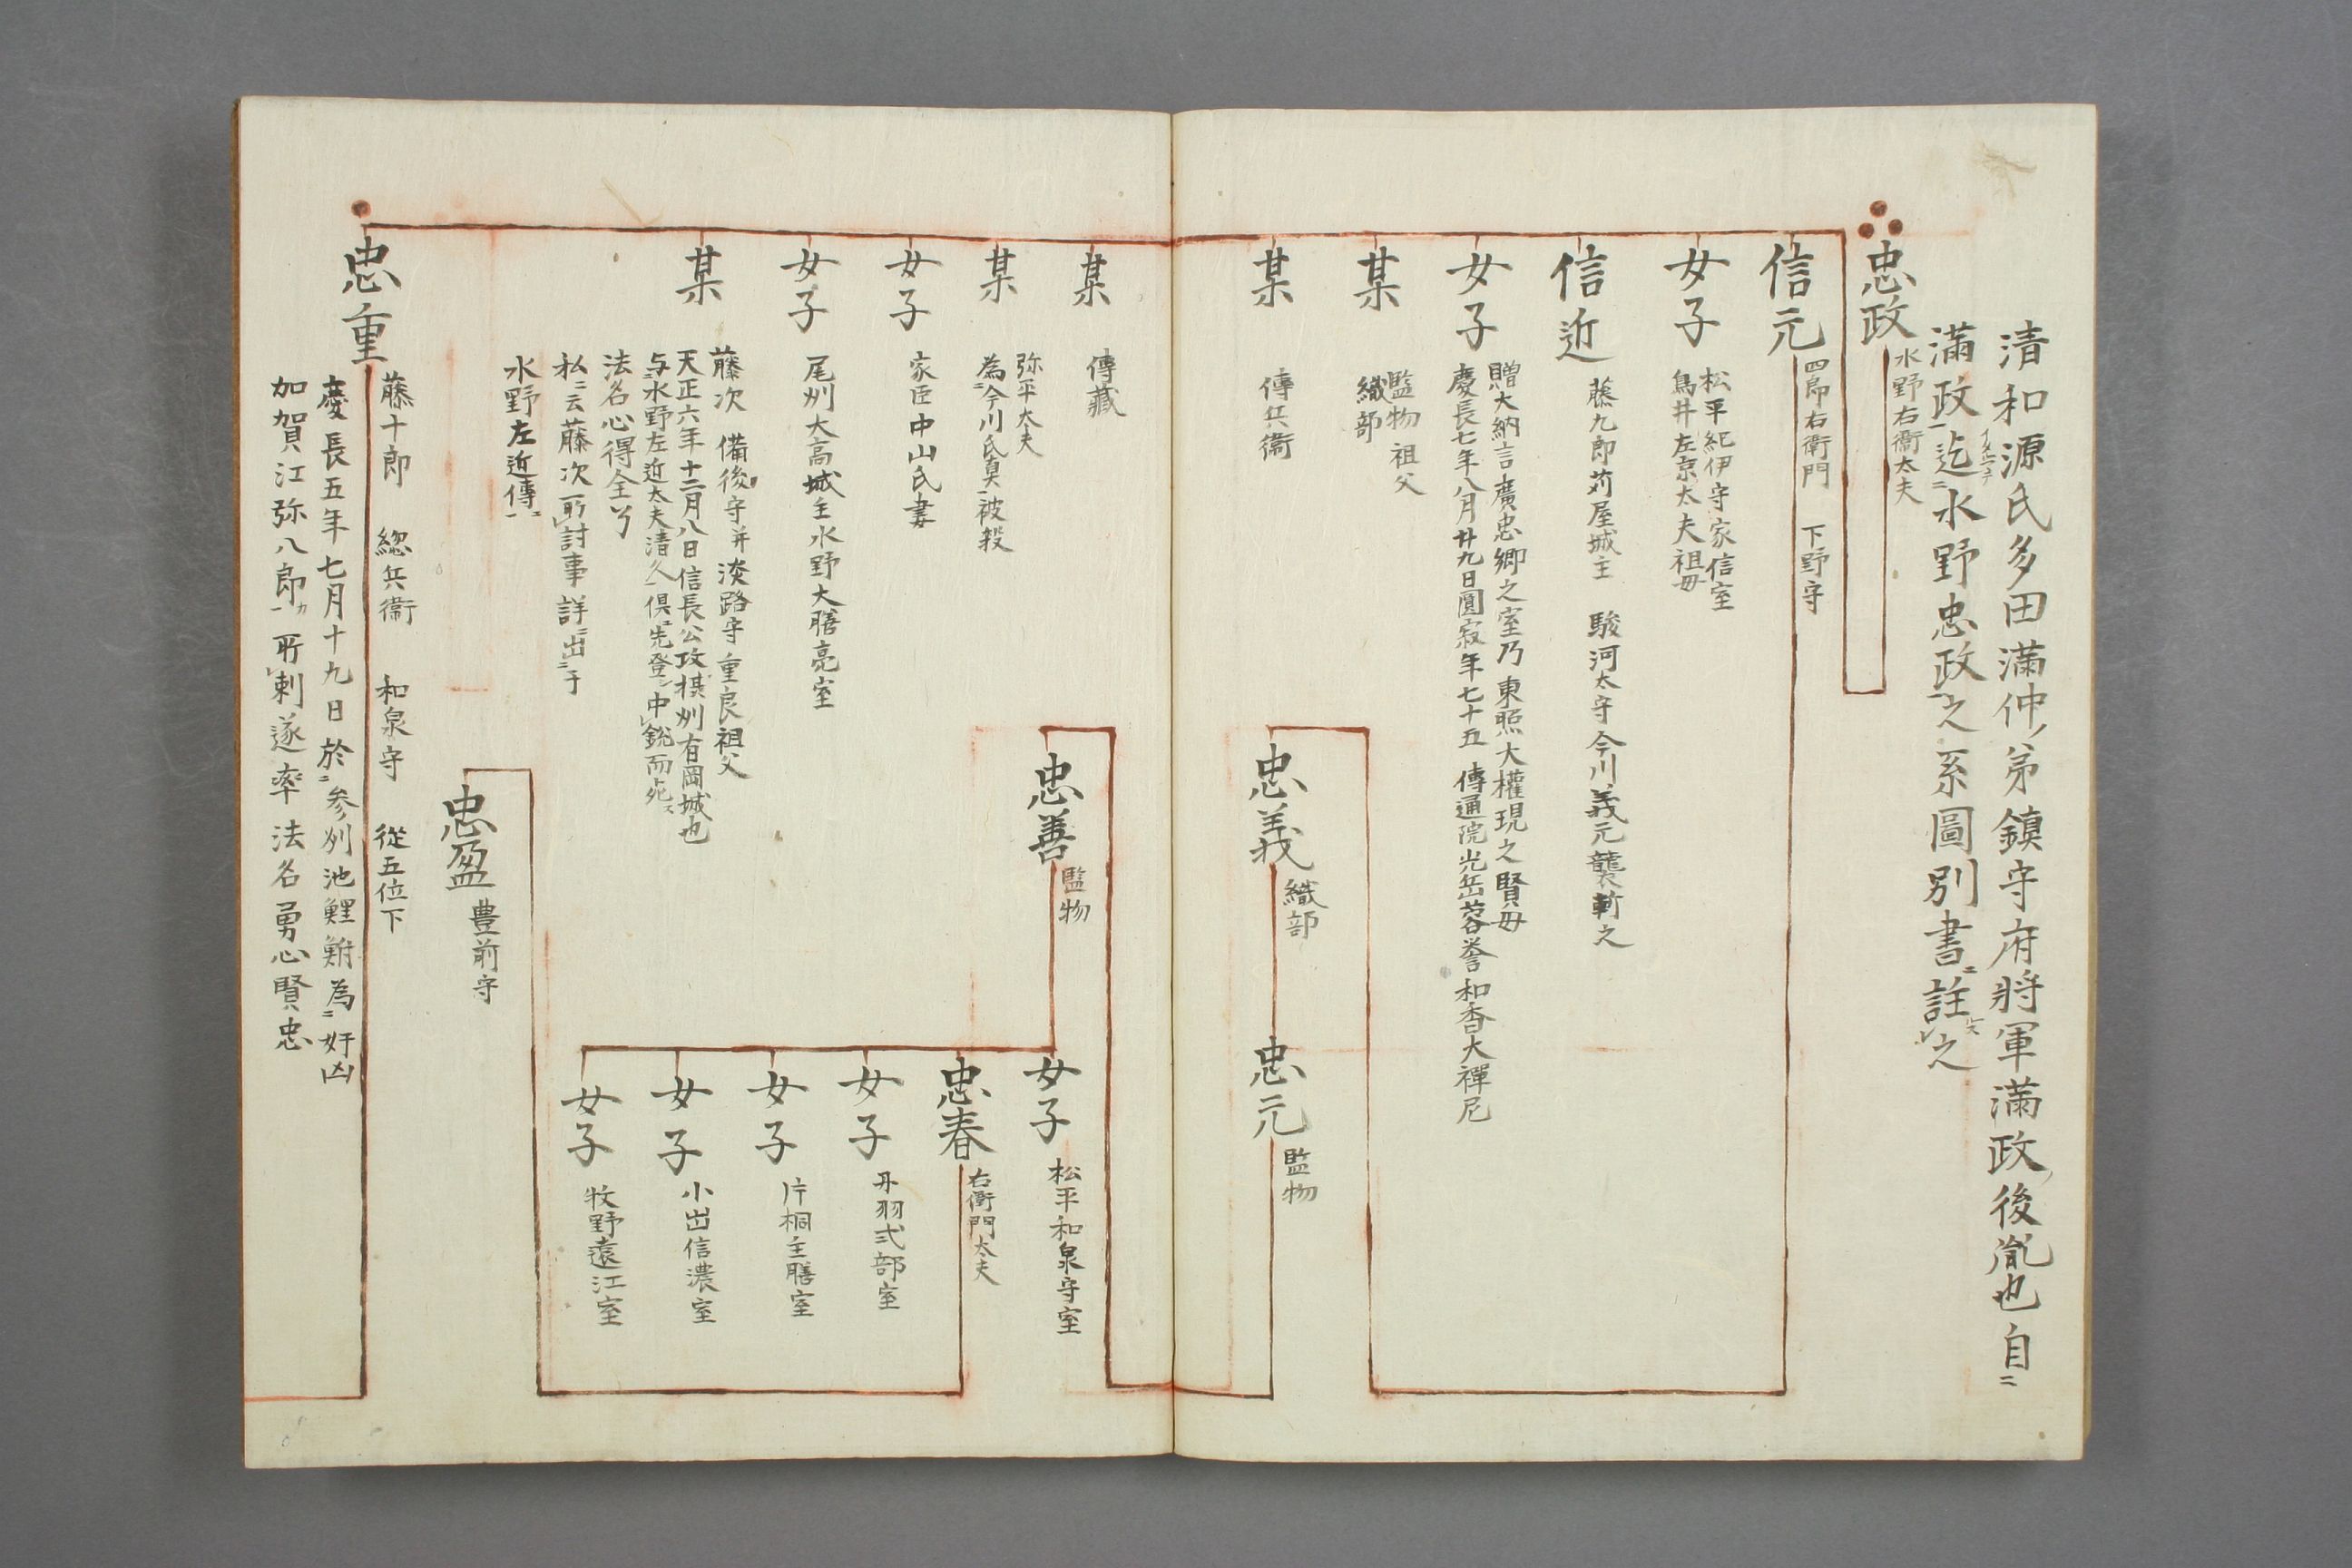 清和源氏多田滿仲ノ弟鎮守府將軍滿政ノ後胤也自二
滿政一迄二水野忠政一之系圖別書二註之
忠政
水野右衞太夫
信元
四郎右衛門　下野守
女子
松平紀伊守家信室
鳥井左京太夫祖母
信近
藤九郎苅屋城主　駿河太守今川義元襲斬之
女子
贈大納言廣忠卿之室乃東照大權現之賢母
慶長七年八月廿九日圓寂年七十五　傳通院光岳蓉誉和香大禪尼
某
監物祖父
織部
某
傳兵衞
忠義
織部
忠元
監物
某
傳藏
某
弥平太夫
為二今川氏真一被殺
忠善
監物
女子
松平和泉守室
忠春
右衛門太夫
女子
丹羽式部室
女子
片桐主膳室
女子
小出信濃室
女子
牧野遠江室
忠盈
豊前守
女子
家臣中山氏妻
女子
尾州大高城主水野大膳亮室
某
藤次　備後守并淡路守重良祖父
天正六年十二月八日信長公攻摂州有岡城也
与水野左近太夫清久一倶先登シ中銃而死ス
法名心得全了
私ニ云藤次所討事詳出二于
水野左近傳一
忠重
藤十郎　総兵衞　和泉守　從五位下
慶長五年七月十九日於二参州池鯉鮒為二奸凶
加賀江弥八郎一所刺遂卒　法名勇心賢忠